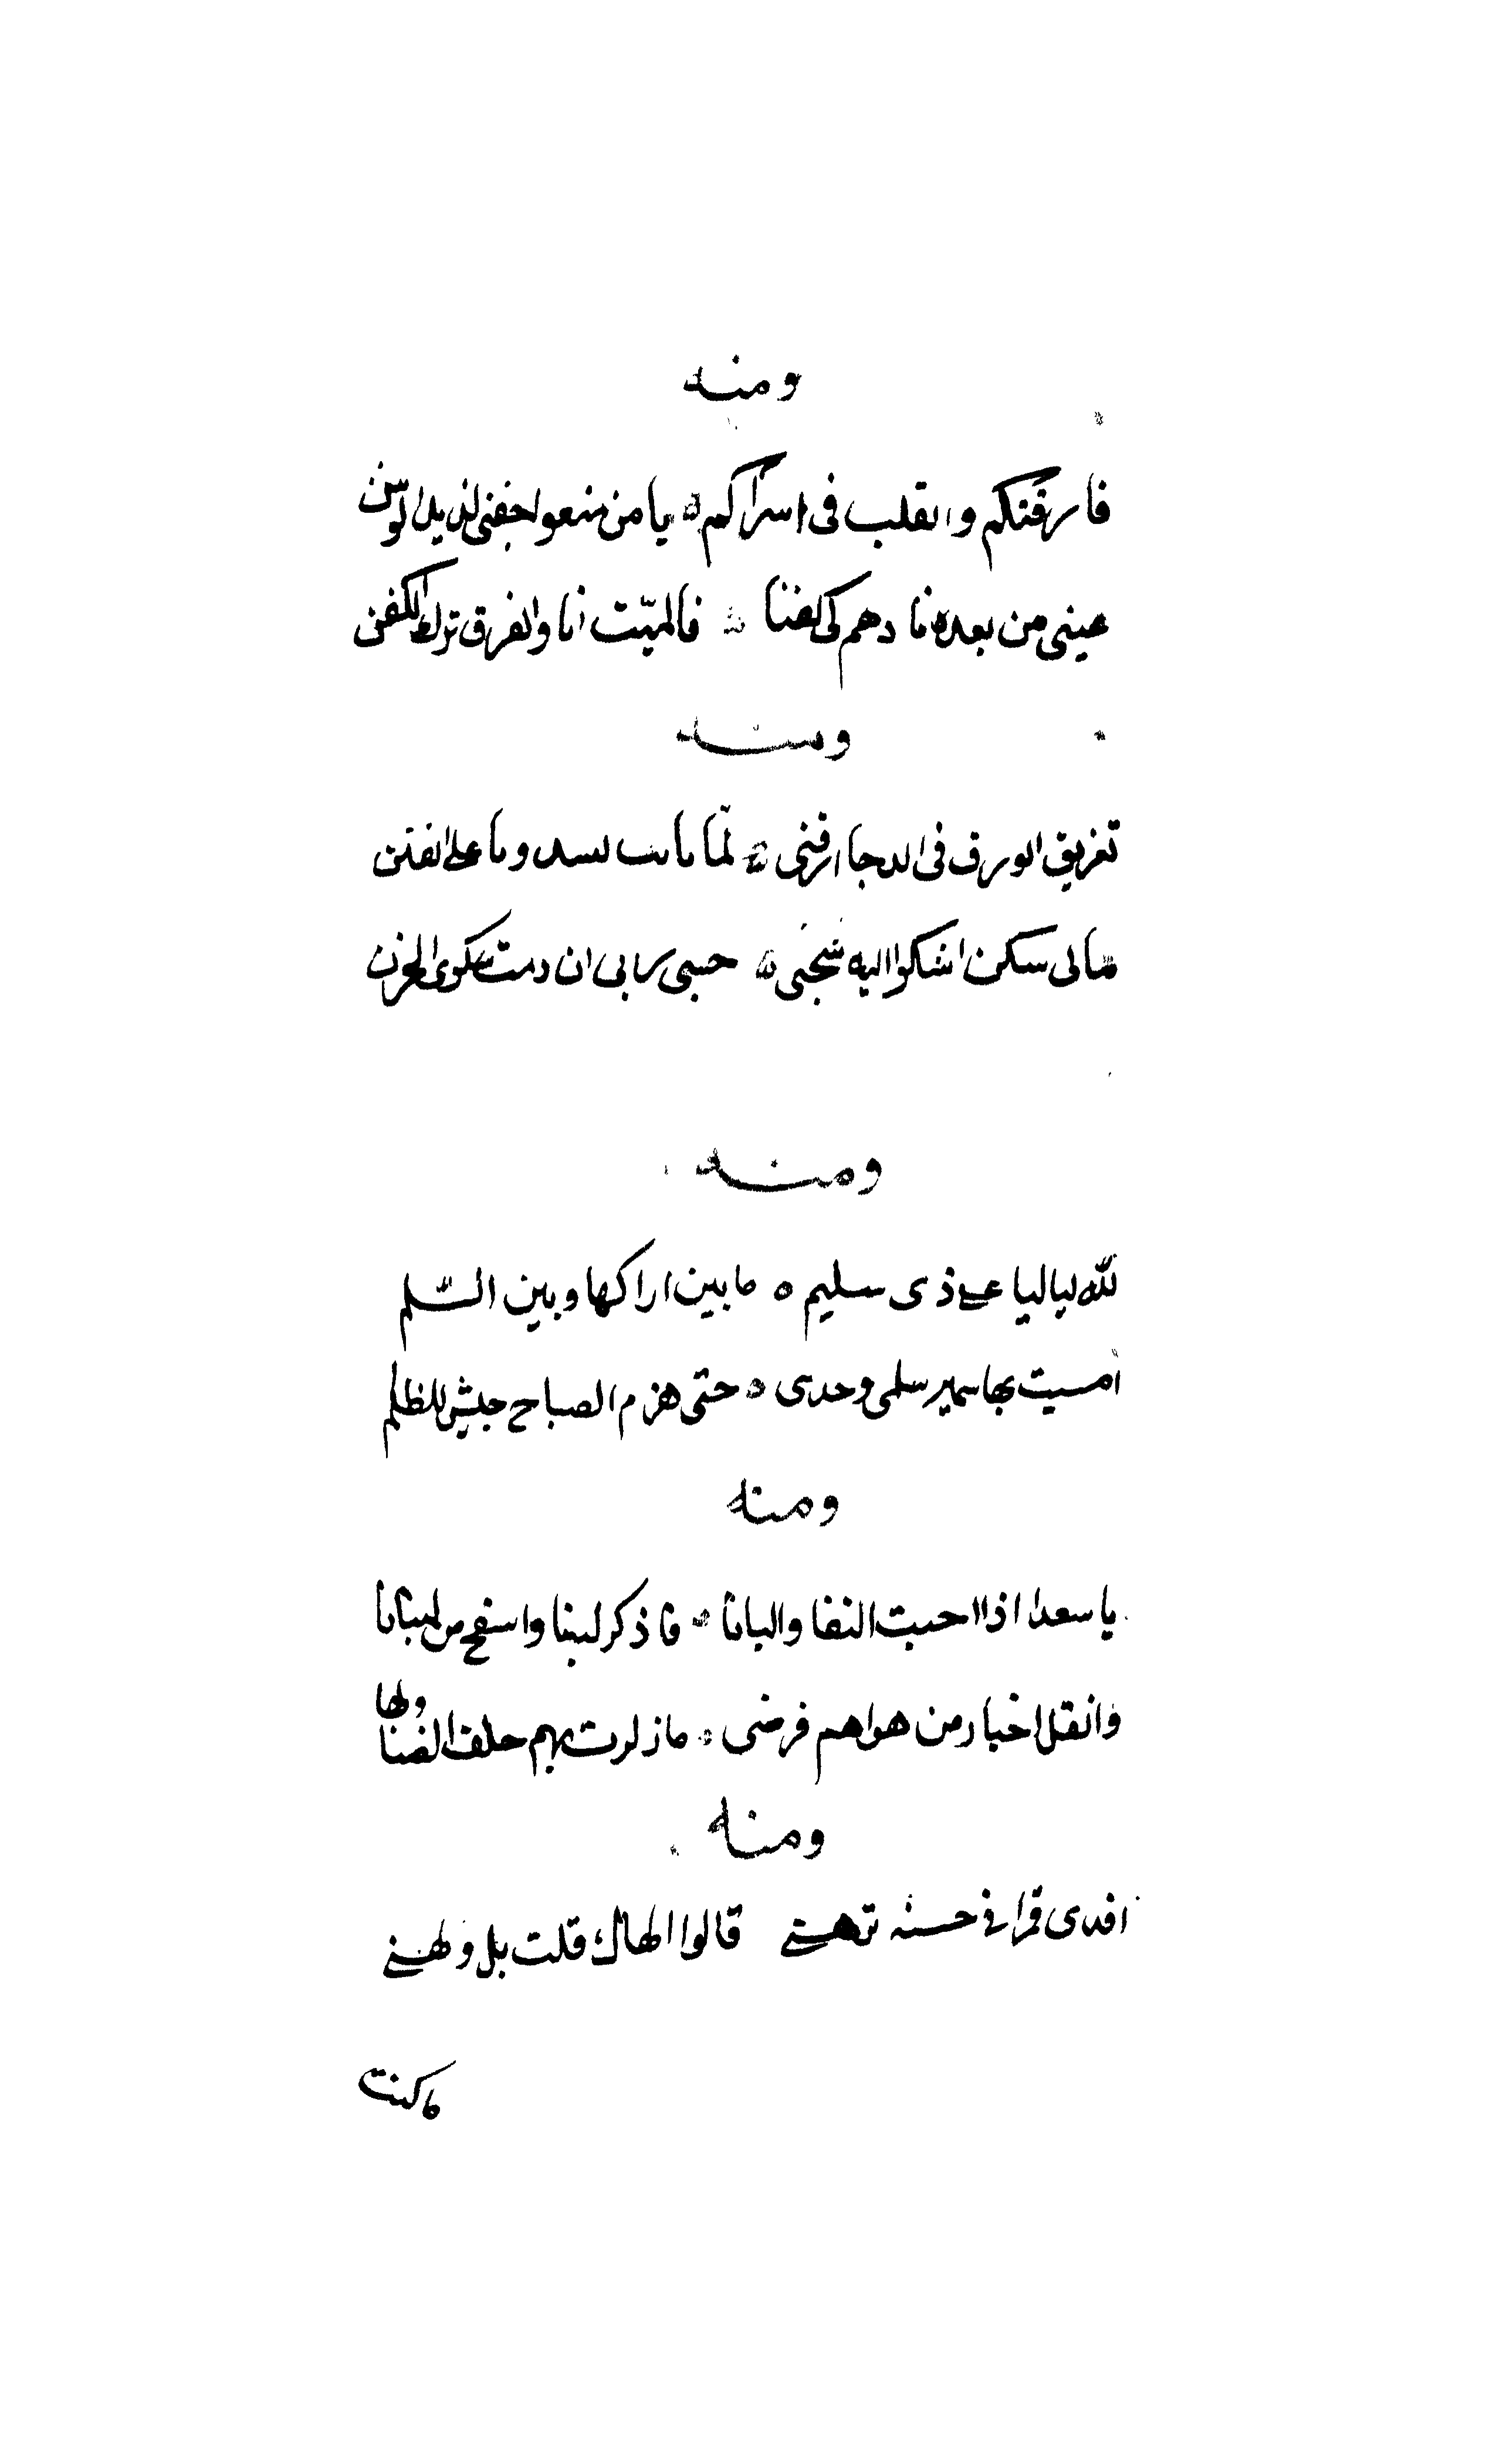 ومنه
فارقتكم والقلب فى اسراكم ه يا من منعوا جفنى لذيذ الوسن
عينى من بعدها دهم كفنا ه فالميّت انا والفرق ترك الكفن
ومنه
تغريق الورق فى الدجا ارقنى ه لمّا باتت على الفنن
مالى سكن اشكوا اليه شجنى ه حسبى ربى ان دمت شكوى الحزن
ومنه
لله ليالياعلى ذى سليم ه مابين اراكها وبين السّلم
امسيت بها سمير سلمى وحدى ه حتى هزم الصباح جيش للظلم
ومنه
يا سعد اذا حبت النقا والبانا ه فاذكر لبنا واسفح من لبنانا
وانقل اخبار من هواهم فرضى ه ماذكرت بهم حلف الضنا ولها
ومنه
افدى قمرا فى حسنه تهتى قالوا الهاك قلت بل ولهنى
ماكنت